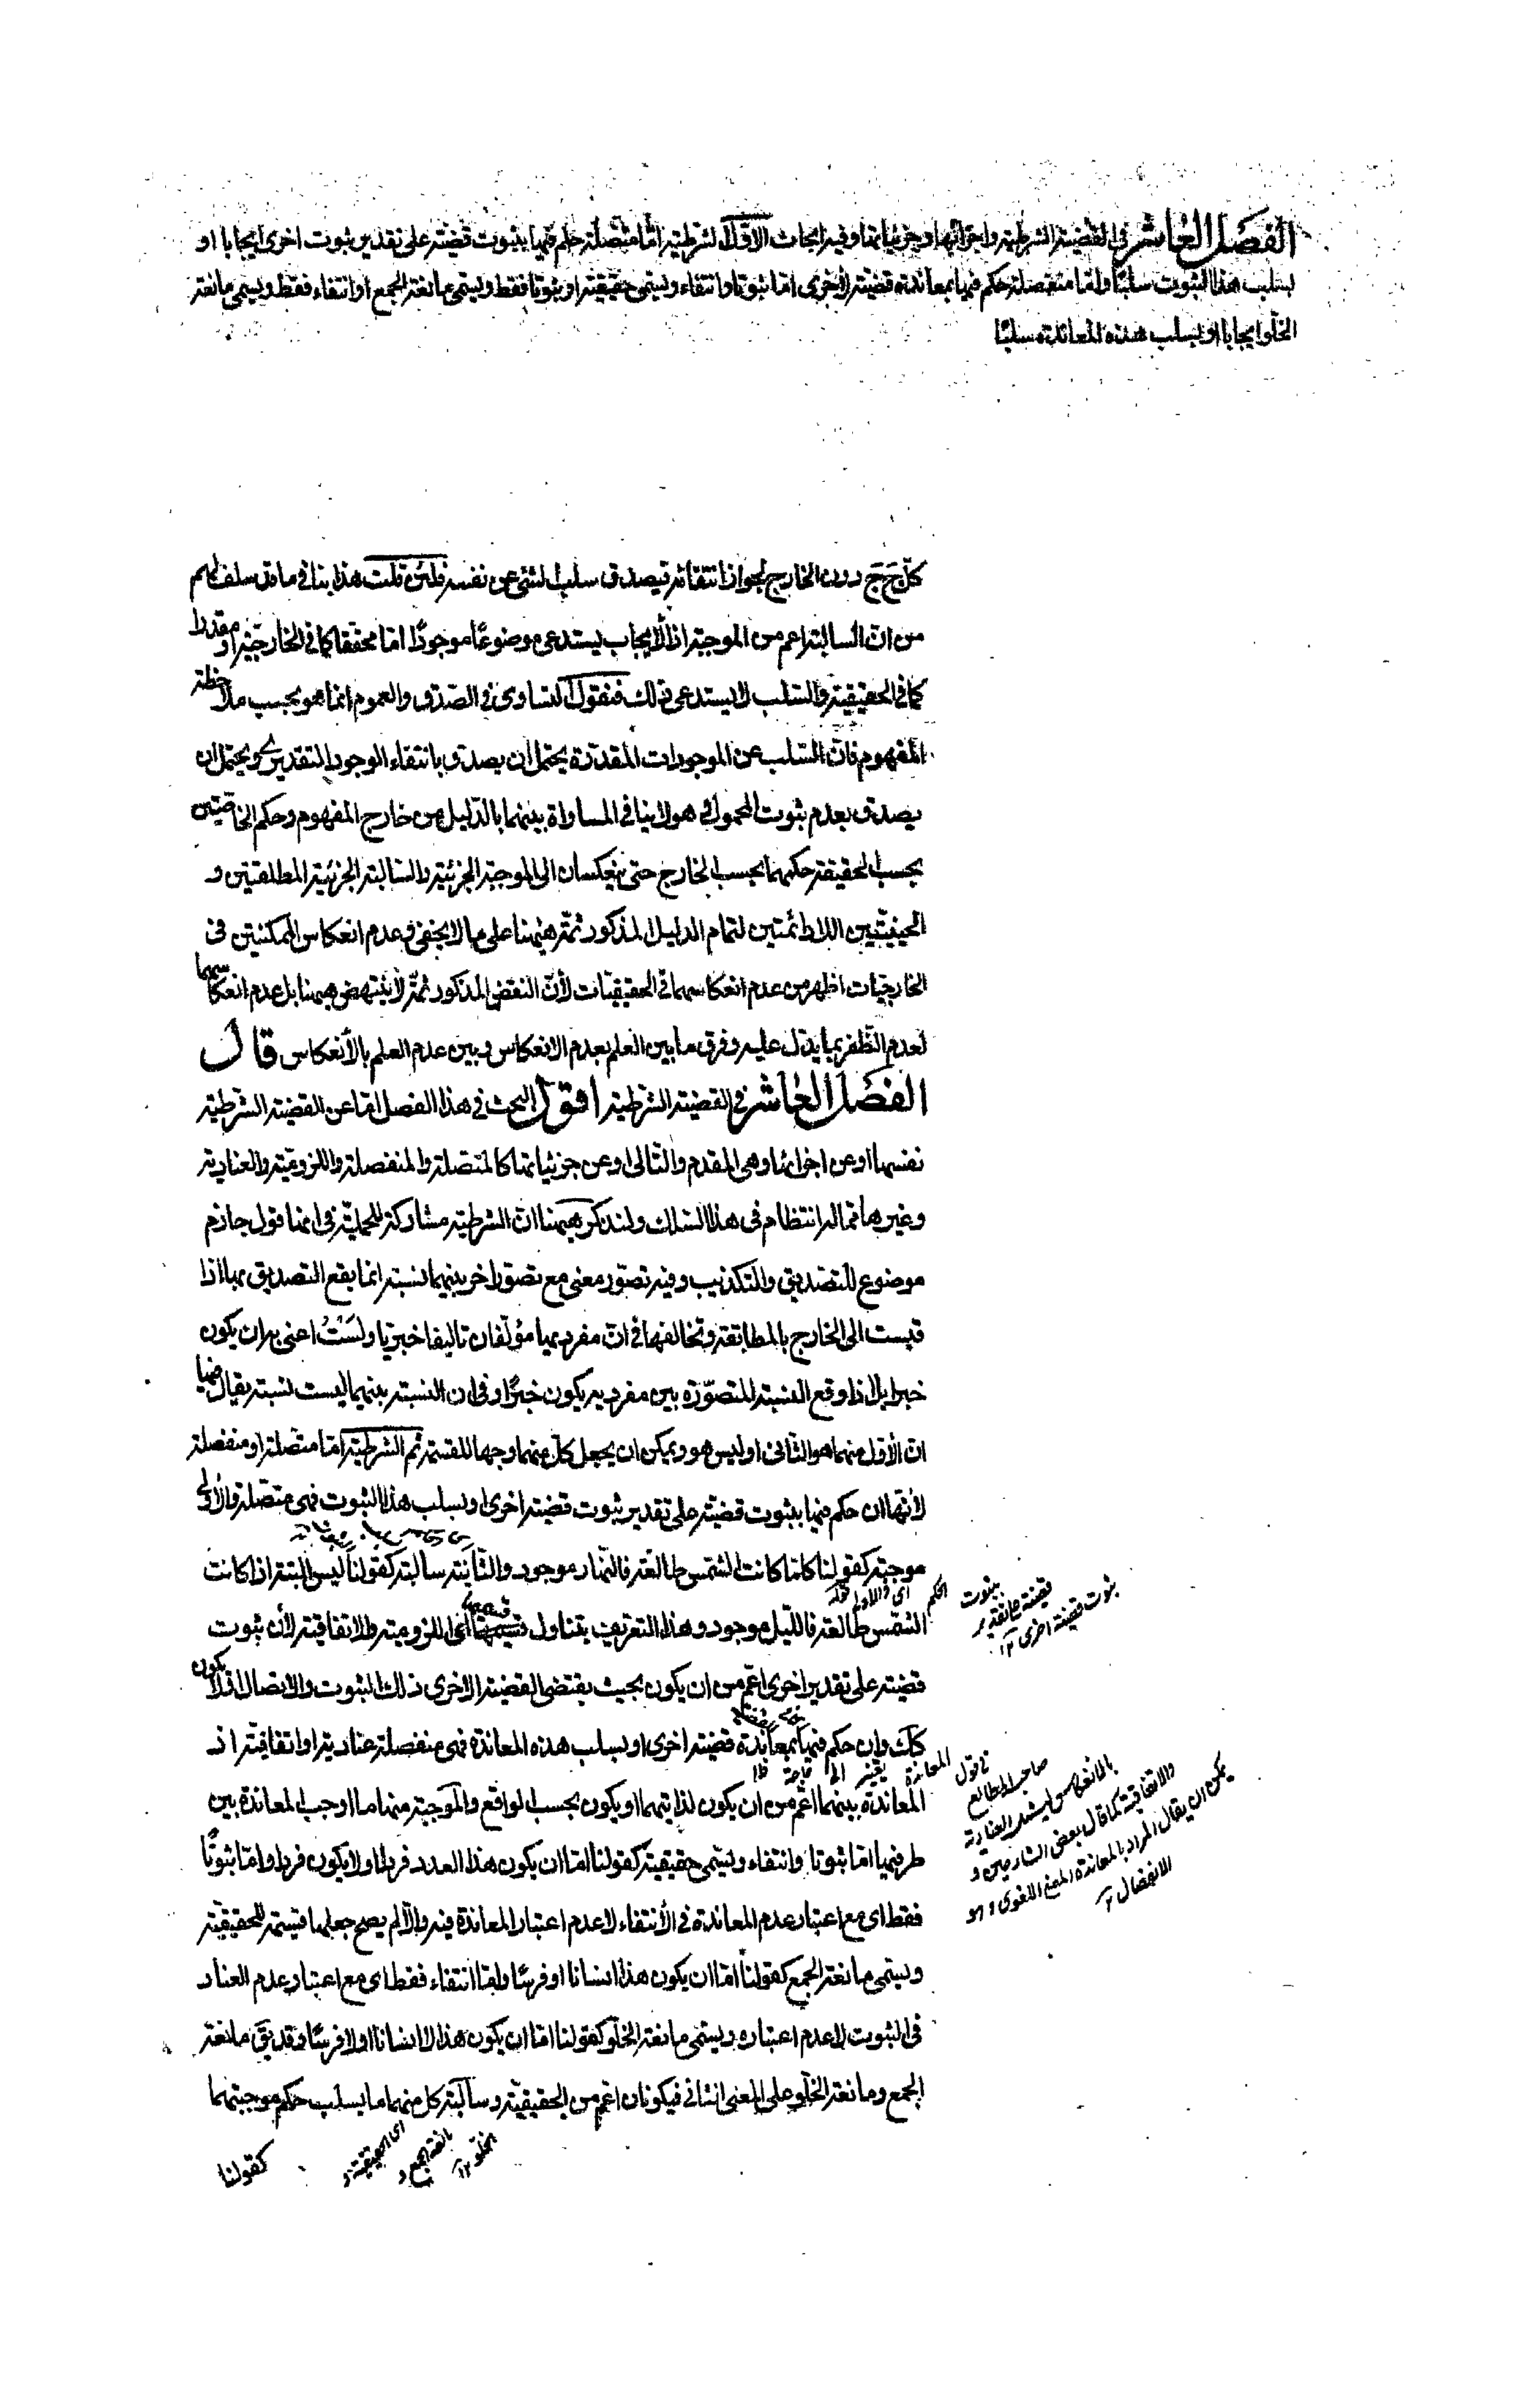 الفصل العاشر في القضية الشرطية واجزائها وجزئياتها وفيه ابحاث الاول الشرطية اما متصلة حكم فيها بثبوت قضية على تقدير ثبوت اخرى ايجابا او
بسلب هذا الثبوت سلبا واما منفصلة حكم فيها بمعاندة قضية لأخرى اما ثبوتا وانتفاء ويسمى حقيقية او ثبوتا فقط ويسمى مانعة الجمع او انتفاء فقط ويسمى مانعة
الخلو ايجابا او بسلب هذه المعاندة سلبا
كل ج ج دون الخارج لجواز انتفائه فيصدق سلب الشئ عن نفسه فلئن قلت هذا ينافي ما قد سلف لكم
من ان السالبة اعم من الموجبة اذ الأيجاب يستدعى موضوعا موجودا اما محققا كما في الخارجية او مقدرا
كما في الحقيقية والسلب لا يستدعى ذلك فنقول التساوى في الصدق والعموم انما هو بحسب ملاحظة
المفهوم فان السلب عن الموجودات المقدرة يحتمل ان يصدق بانتفاء الوجود التقديرى ويحتمل ان
يصدق بعدم ثبوت المحمول هو لا ينافي المساواة بينهما بالدليل من خارج المفهوم وحكم الخاصتين
بحسب الحقيقة حكمهما بحسب الخارج حتى ينعكسان الى الموجبة الجزئية والسالبة الجزئية المطلقتين و
الحينيتين اللادائمتين لتمام الدليل المذكور ثمة ههنا على ما لا يخفى وعدم انعكاس الممكنتين في
الخارجيات اظهر من عدم انعكاسهما في الحقيقيات لأن النقض المذكور ثمة لا ينتهض ههنا بل عدم انعكاسهما
لعدم الظفر بما يدل عليه وفرق ما بين العلم بعدم الانعكاس وبين عدم العلم بالأنعكاس قال
الفصل العاشر في القضية الشرطية اقول البحث في هذا الفصل اما عن القضية الشرطية
نفسها او عن اجزائها وهى المقدم والتالى او عن جزئياتها كالمتصلة والمنفصلة واللزومية والعنادية
وغيرها مما له انتظام فى هذا السلك ولنذكر ههنا ان الشرطية مشاركة للحملية فى انها قول جازم
موضوع للتصديق والتكذيب وفيه تصور معنى مع تصور اخر بينهما نسبة انما يقع التصديق بها اذا
قيست الى الخارج بالمطابقة وتخالفها في ان مفرديها مؤلفان تاليفا خبريا ولست اعنى به ان يكون
خبرا بل اذا وقع النسبة المتصورة بين مفرديه يكون خبرا وفى ان النسبة بينهما ليست نسبة يقال فيها
ان الأول منهما هو الثانى او ليس هو ويمكن ان يجعل كل منهما وجها للقسمة ثم الشرطية اما متصلة او منفصلة
لأنها ان حكم فيها بثبوت قضية على تقدير ثبوت قضية اخرى او بسلب هذا الثبوت فهى متصلة والأولى
موجبة كقولنا كلما كانت الشمس طالعة فالنهار موجود والثانية سالبة كقولنا ليس البتة اذا كانت
الشمس طالعة فالليل موجود وهذا التعريف يتناول قسميها اى اللزومية والاتفاقية لأن ثبوت
قضية على تقدير اخرى اعم من ان يكون بحيث يقتضى القضية الاخرى ذلك الثبوت والاتصال اولا يكون
كك وان حكم فيها بمعاندة قضية اخرى او بسلب هذه المعاندة فهى منفصلة عنادية او اتفاقية اذ
المعاندة بينهما اعم من ان يكون لذاتيهما او يكون بحسب الواقع والموجبة منهما ما اوجب المعاندة بين
طرفيها اما ثبوتا وانتفاء ويسمى حقيقية كقولنا اما ان يكون هذا العدد فردا او لا يكون فردا واما ثبوتا
فقط اى مع اعتبار عدم المعاندة في الأنتفاء لا عدم اعتبار المعاندة فيه والا لم يصح جعلها قسيمة للحقيقية
ويسمى مانعة الجمع كقولنا اما ان يكون هذا انسانا او فرسا واما انتفاء فقط اى مع اعتبار عدم العناد
فى الثبوت لا عدم اعتباره ويسمى مانعة الخلو كقولنا اما ان يكون هذا لا انسانا او لا فرسا وقد يق مانعة
الجمع ومانعة الخلو على المعنى الثانى فيكونان اعم من الحقيقية وسالبة كل منهما ما يسلب حكم موجبتهما
كقولنا
اى الحقيقية و
مانعة الجمع و
الخلو ١٢
بثبوت
قضية على تقدير
ثبوت قضية اخرى ١٢
صاحب المطالع
والاتفاقية كما قال بعض الشارحين و
يمكن ان يقال المراد بالمعاندة المعنى اللغوى وهو
الانفصال ١٢